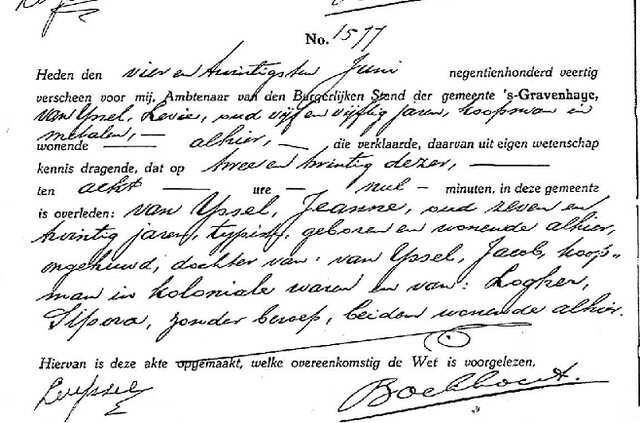 No. 1577
Heden den vier en twintigsten Juni negentienhonderd veertig
verscheen voor mij, Ambtenaar van den Burgerlijken Stand der gemeente 's-Gravenhage,
van Yssel, Levie, oud vijf en vijftig jaren, koopman in
metalen, —
wonende — alhier, — die verklaarde, daarvan uit eigen wetenschap
kennis dragende, dat op twee en twintig dezer, —
ten acht — ure — nul — minuten, in deze gemeente
is overleden: van Yssel, Jeanne, oud zeven en
twintig jaren, typiste, geboren en wonende alhier,
ongehuwd, dochter van: van Yssel, Jacob, koop-
man in koloniale waren en van: Logher,
Sipora, zonder beroep, beiden wonende alhier.
Hiervan is deze akte opgemaakt, welke overeenkomstig de Wet is voorgelezen.
LvYssel Boekhout.